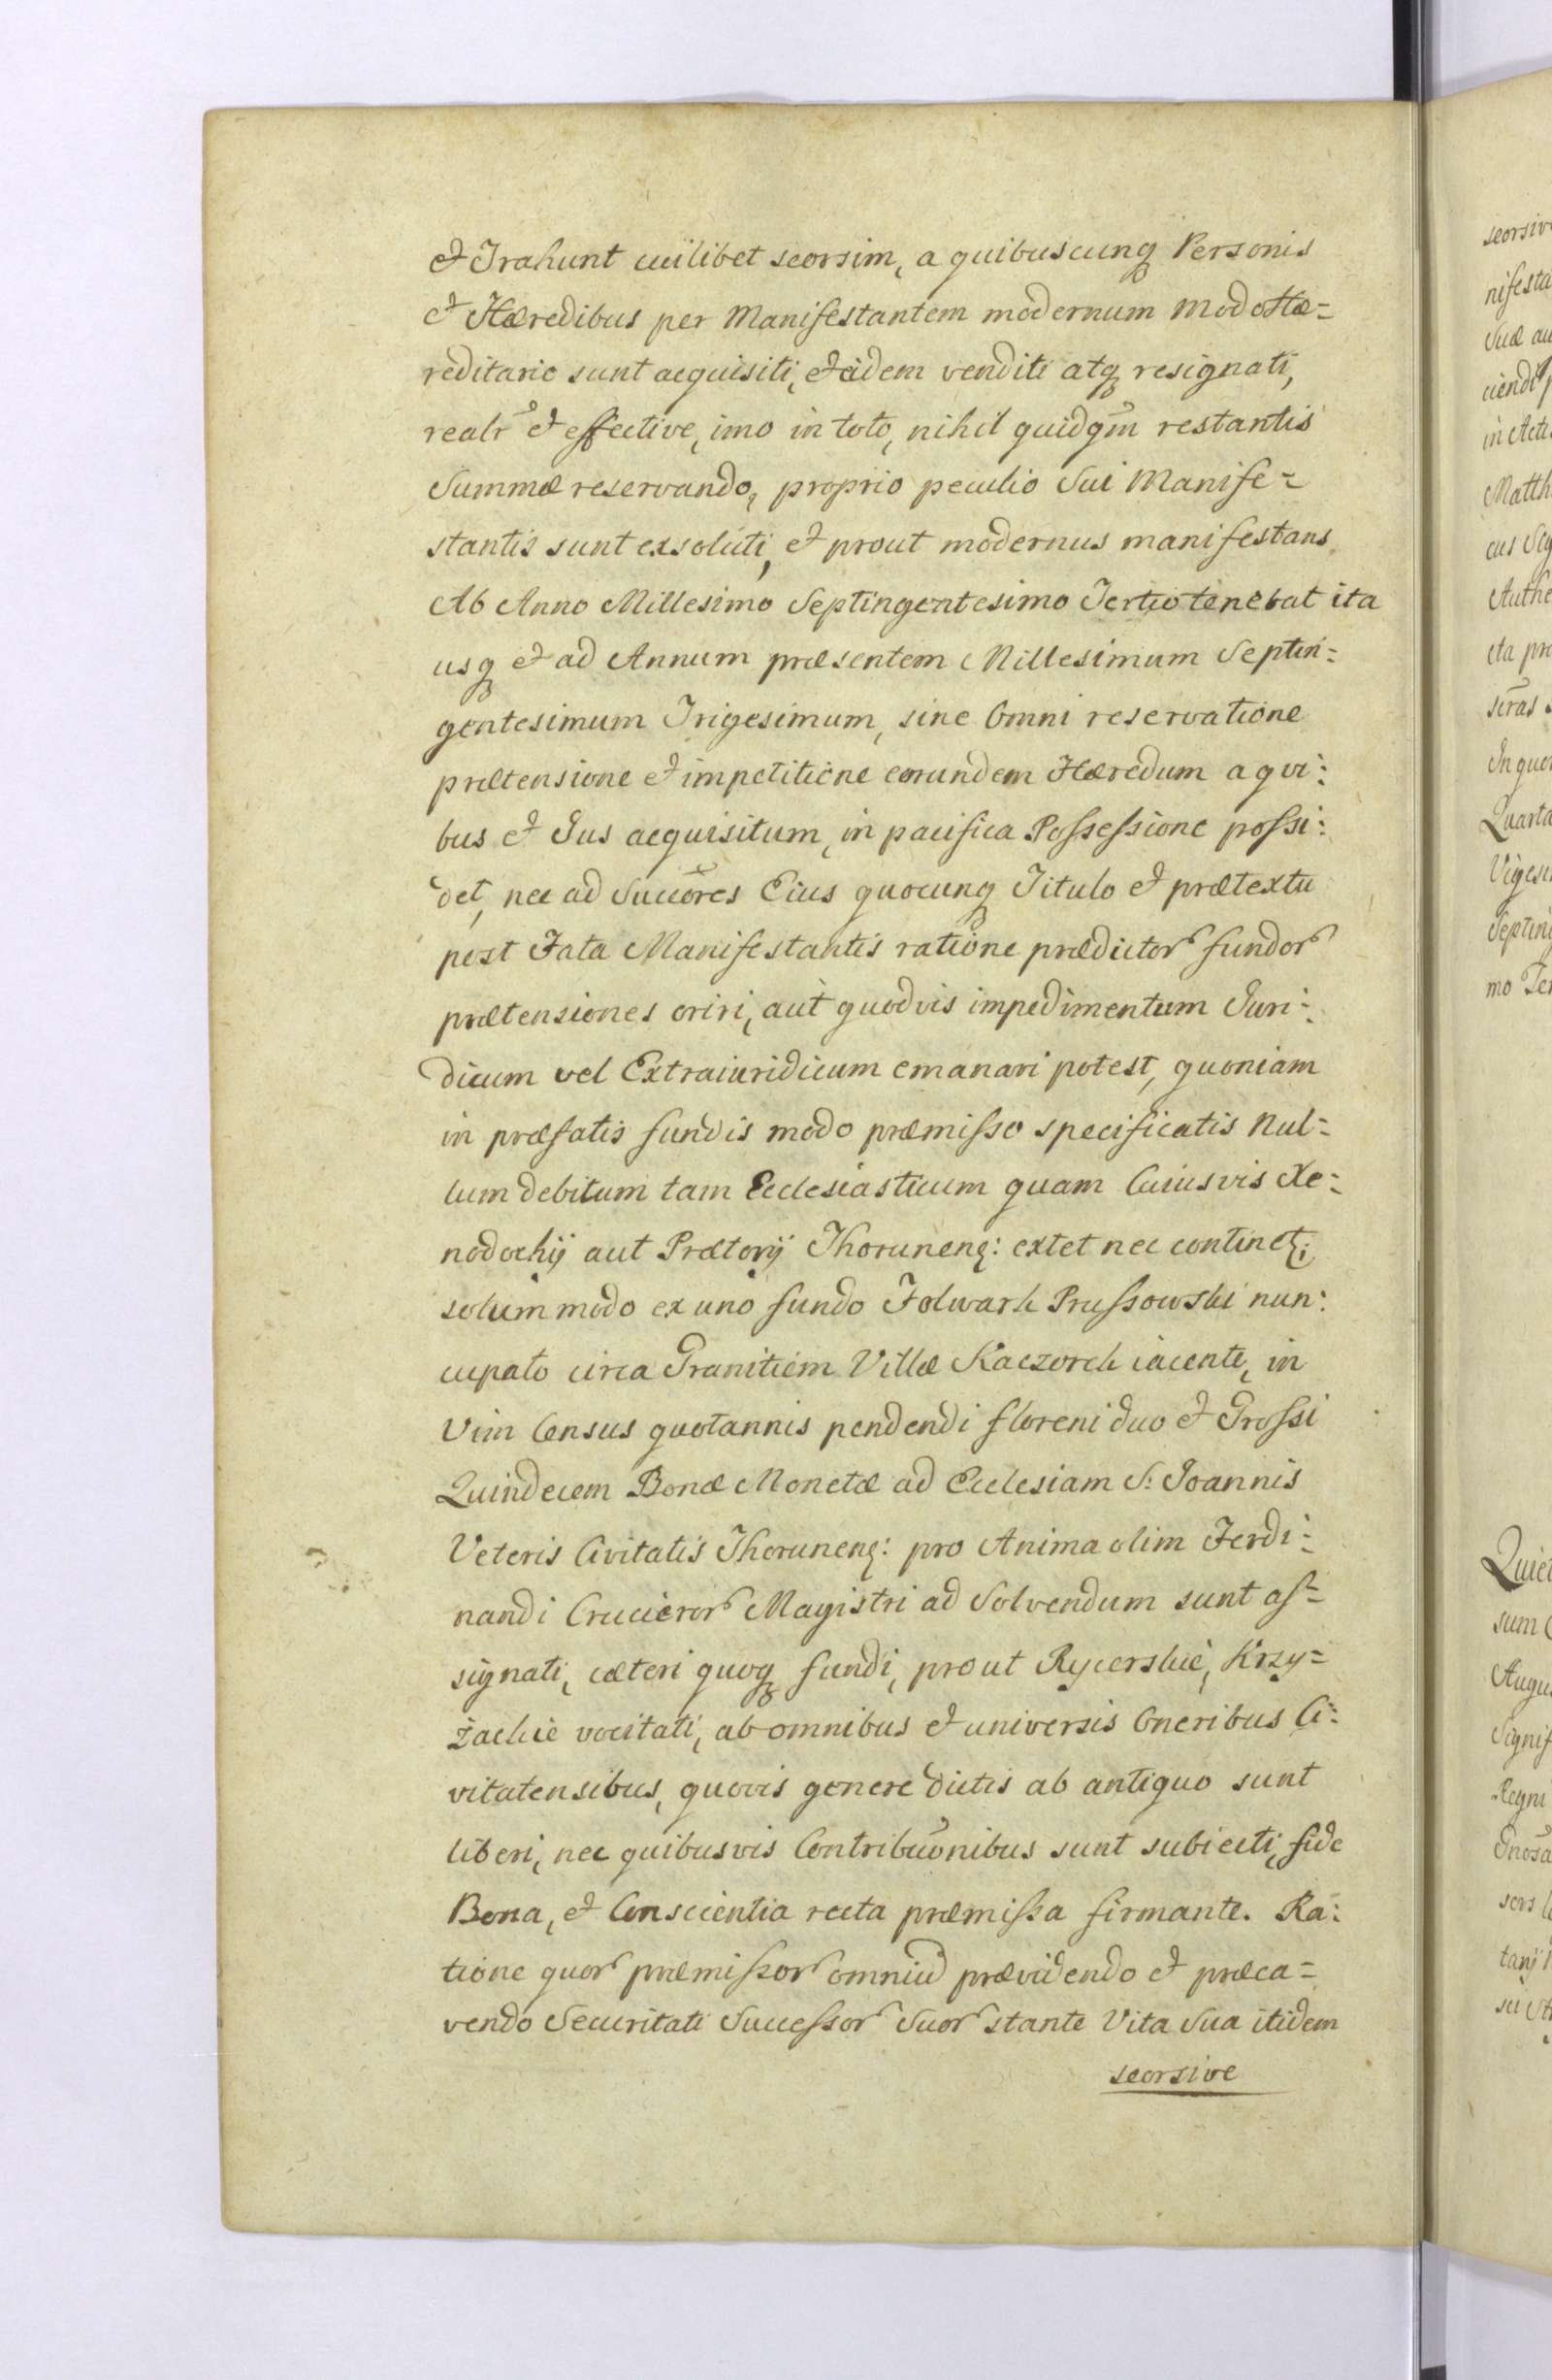 et Trahunt cuilibet seorsim, a quibuscunq Personis
et Hæredibus per Manifestantem modernum modo Hæ=
reditario sunt acquisiti, et eidem venditi atq resignati,
realr et effective, imo in toto, nihil quidqm restantis
Summæ reservando, proprio peculio Sui Manife=
stantis sunt exsoluti, et prout modernus manifestans
Ab Anno Millesimo Septingentesimo Tertio tenebat ita
usq et ad Annum præsentem Millesimum Septin=
gentesimum Trigesimum, sine Omni reservatione
prætensione et impetitione eorundem Hæredum a qvi:
bus et Jus acquisitum, in pacifica Possessione possi:
det, nec ad Succores Eius quocunq Titulo et prætextu
post Fata Manifestantis ratione prædictor fundor
prætensiones oriri, aut quodvis impedimentum Juri:
dicum vel Extraiuridicum emanari potest, quoniam
in præfatis fundis modo præmisso specificatis Nul=
lum debitum tam Ecclesiasticum quam Cuiusvis Xe=
nodochij aut Prætorij Thorunenς: extet nec continet;
solummodo ex uno fundo Folwark Prussowski nun:
cupato circa Granitiem Villæ Kaczorek iacente, in
Vim Census quotannis pendendi floreni duo et Grossi
Quindecem Bonæ Monetæ ad Ecclesiam S: Joannis
Veteris Civitatis Thorunenς: pro Anima olim Ferdi:
nandi Crucieror Magistri ad Solvendum sunt as=
signati, cæteri quoq fundi, prout Rycerskie, Krzy=
żackie vocitati, ab omnibus et universis Oneribus Ci:
vitatensibus, quovis genere dictis ab antiquo sunt
liberi, nec quibusvis Contribuonibus sunt subiecti, fide
Bona, et Conscientia recta præmissa firmante. Ra:
tione quor præmissor omniu prævidendo et præca=
vendo Securitati Successor Suor stante Vita Sua itidem
seorsive
seorsiv
nifesta
Suæ au
ciendi p
in Acti
Matth
cus Sig
Authe
cta pr
scras
In quor
Quarta
Vigesi
Septin
mo Ter
Quiet
sum
Augu
Signif
Regni
Gnosa
sors
tanj